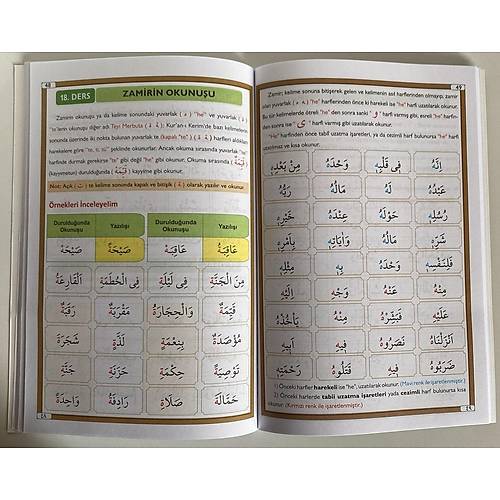 48
18. DERS
ZAMİRİN OKUNUŞU
Zamirin okunuşu ya da kelime sonundaki yuvarlak ( ه ) "he" ve yuvarlak ( ة )
"te"lerin okunuşu diğer adı Teyi Merbuta ( ة ); Kur'an-ı Kerim'de bazı kelimelerin
sonunda üzerinde iki nokta bulunan yuvarlak te (kapalı "te") ( ة ) harfleri aldıkları
harekelere göre "te, ti, tü" şeklinde okunurlar. Ancak okuma sırasında yuvarlak "te"
harfinde durmak gerekirse "te" gibi değil "he" gibi okunur. Okuma sırasında ( قَيِّمَةٌ )
(kayyimetun) durulduğunda ( قَيِّمَهْ ) kayyime gibi okunur.
Not: Açık ( ت ) te kelime sonunda kapalı ve bitişik ( ة ) olarak yazılır ve okunur.
Örnekleri İnceleyelim
Durulduğunda Okunuşu Yazılışı Durulduğunda Okunuşu Yazılışı
صَيْحَهْ صَيْحَةً عَاقِبَهْ عَاقِبَةُ
اَلْقَارِعَةُ فِى الْحُطَمَةِ فِى لَيْلَةِ مِنَ الْجَنَّةِ
رَقَبَةٌ مَقْرَبَةٍ وَالْحِجَارَةُ قَيِّمَةٌ
شَجَرَةَ لَذَّةٍ بِنِعْمَةِ مُؤْصَدَةٌ
جَنَّةَ حَزَنَةِ حِكْمَةٍ تَوْصِيَةً
وَاحِدَةً رَادِفَةُ صَلَاةِ حَمَّالَةَ
49
Zamir; kelime sonuna bitişerek gelen ve kelimenin asıl harflerinden olmayıp, zamir
olan yuvarlak ( ه ) "he" harflerinden önce ki harekeli ise "he" harfi uzatılarak okunur.
Bu tür kelimelerde ötreli "he" den sonra sanki " و " harfi varmış gibi, esreli "he" harfin-
den sonra ise " ي " harfi varmış gibi uzatılarak okunur.
"He" harfinden önce tabii uzatma işaretleri, ya da cezimli harf bulunursa "he" harfi
uzatılmaz ve kısa okunur.
مِنْ بَعْدِهِ فِى قَلْبِهِ وَحْدَهُ اِنَّهُ
رَبُّهُ مَالُهُ لَهُ عَبْدُهُ
خَيْرِهِ عِنْدَهُ حَوْلَهُ رُسُلِهِ
بِاَمْرِهِ وَاٰيَاتِهِ مَالُهُ شَرِّهِ
مِثْلِهِ بِهِ وَحْدَهُ فَلِنَفْسِهِ
اِلَيْهِ وَجْهِ عَنْهُ مِنْهُ
يَاْخُذْهُ مِنْهُ فَبَشِّرْهُ عَلَيْهِ
اَبِيهِ فِيهِ نَصَرُوهُ اَنْزَلْنَاهُ
رَحْمَتِهِ قَتَلُوهُ فِيهِ ضَرَبُوهُ
1) Önceki harfler harekeli ise "he", uzatılarak okunur. (Mavi renk ile işaretlenmiştir.)
2) Önceki harlerde tabii uzatma işaretleri yada cezimli harf bulunursa kısa
okunur. (Kırmızı renk ile işaretlenmiştir.)